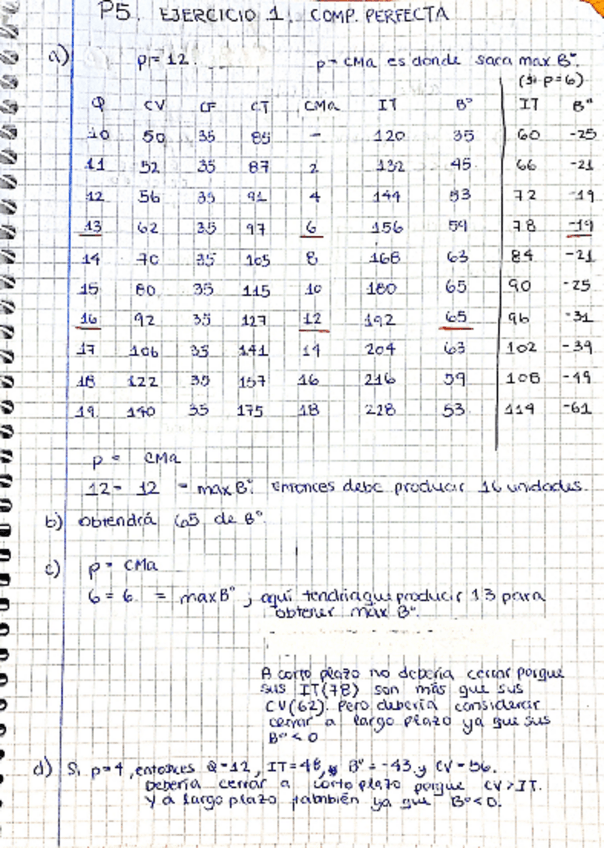 P5. EJERCICIO 1. COMP. PERFECTA
a) p = 12. p = CMa es donde saca max Bº.
(si p=6)
Q CV CF CT CMa IT Bº IT Bº
10 50 35 85 - 120 35 60 -25
11 52 35 87 2 132 45 66 -21
12 56 35 91 4 144 53 72 -19
13 62 35 97 6 156 59 78 -19
14 70 35 105 8 168 63 84 -21
15 80 35 115 10 180 65 90 -25
16 92 35 127 12 192 65 96 -31
17 106 35 141 14 204 63 102 -39
18 122 35 157 16 216 59 108 -49
19 140 35 175 18 228 53 114 -61
p = CMa
12 = 12 = max Bº. Entonces debe producir 16 unidades.
b) Obtendrá 65 de Bº.
c) p = CMa
6 = 6 = max Bº, aquí tendría que producir 13 para
obtener max Bº.
A corto plazo no debería cerrar porque
sus IT(78) son más que sus
CV(62). Pero debería considerar
cerrar a largo plazo ya que sus
Bº < 0
d) Si p=4, entonces Q=12, IT=48, y Bº = -43 y CV = 56.
Debería cerrar a corto plazo porque CV > IT.
Y a largo plazo también ya que Bº < 0.